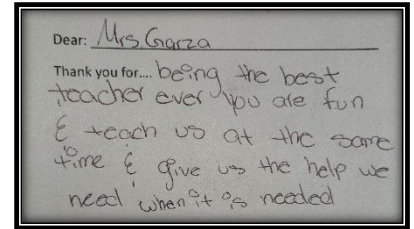 Dear: Mrs. Garza
Thank you for.... being the best
teacher ever you are fun
& teach us at the same
time & give us the help we
need when it is needed